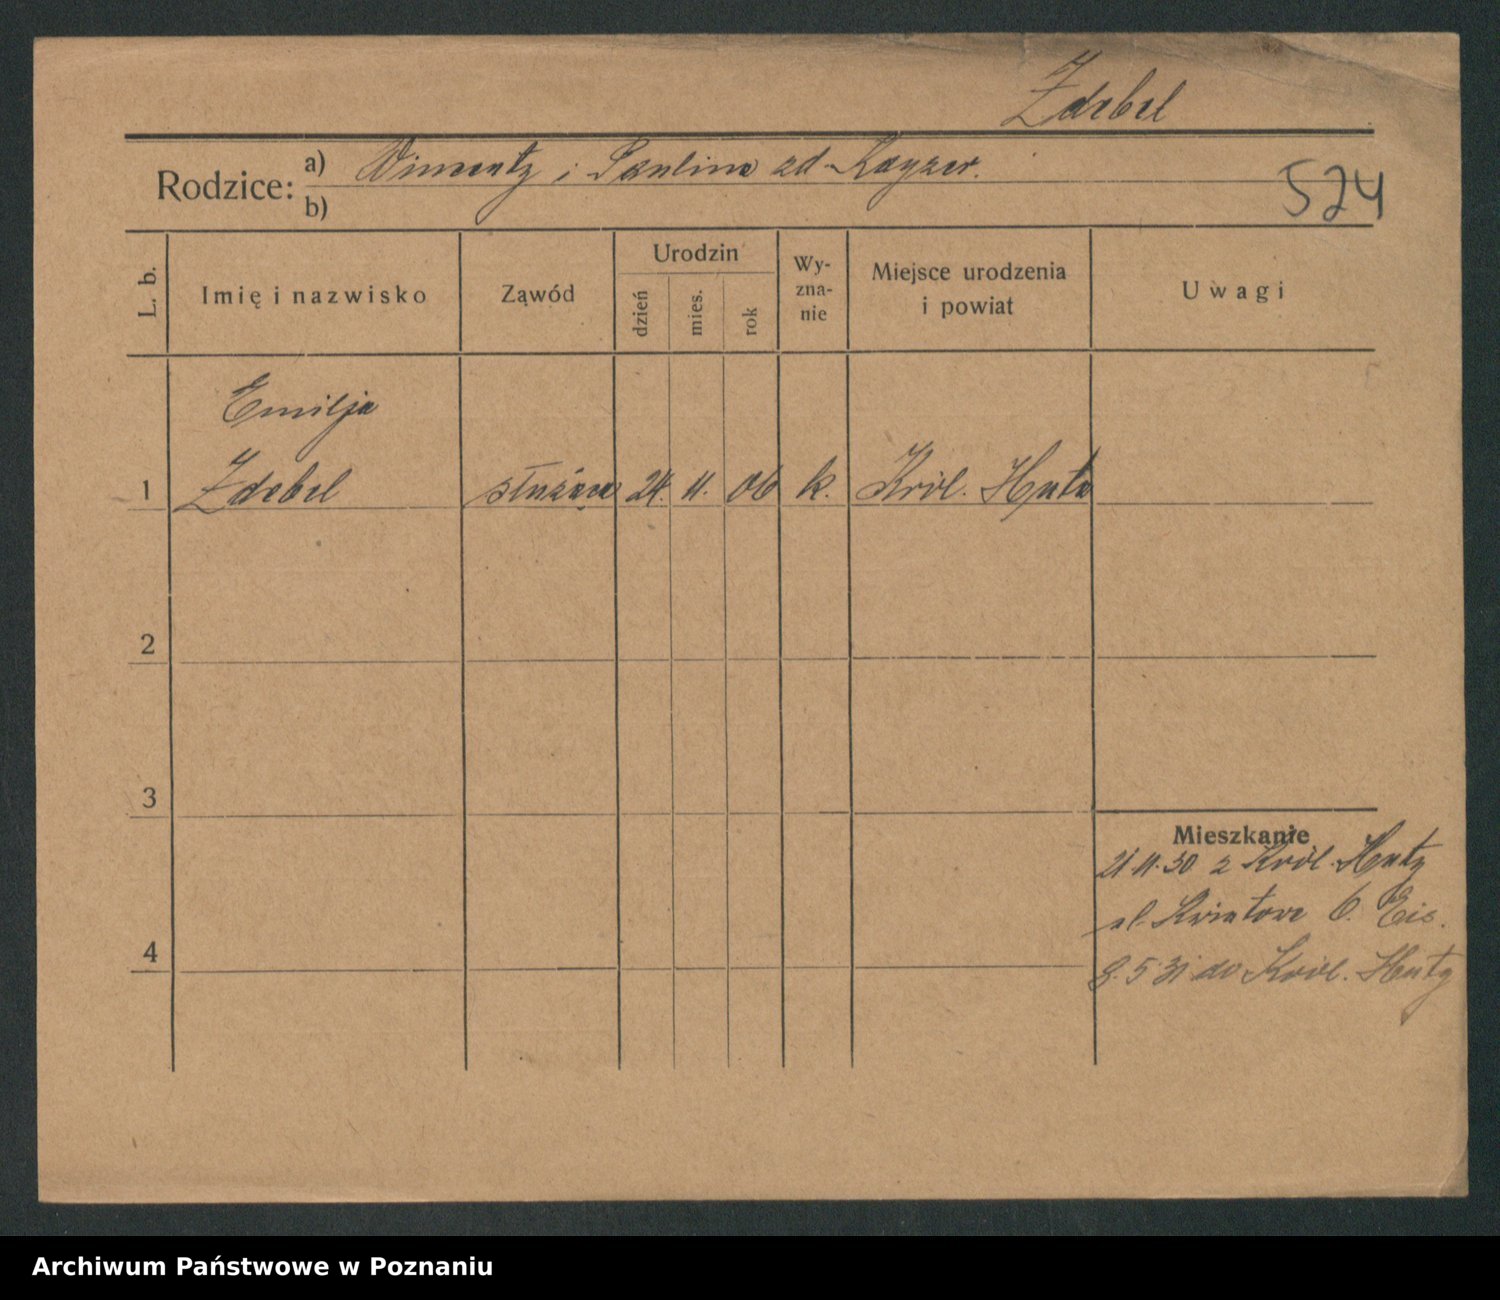 Zdebel
Rodzice:
a) Vincenty i Paulina zd. Kayzer.
b)
524
L. b.
Imię i nazwisko
Ząwód
Urodzin
dzień
mies.
rok
Wy-
zna-
nie
Miejsce urodzenia
i powiat
Uwagi
Emilja
1 Zdebel służąca 24. 11. 06 k. Król. Huta
2
3
Mieszkanie
21.11.30 z Król. Huty
ul. Kwiatowa 6. Eis.
4
8.5.31 do Król. Huty
Archiwum Państwowe w Poznaniu